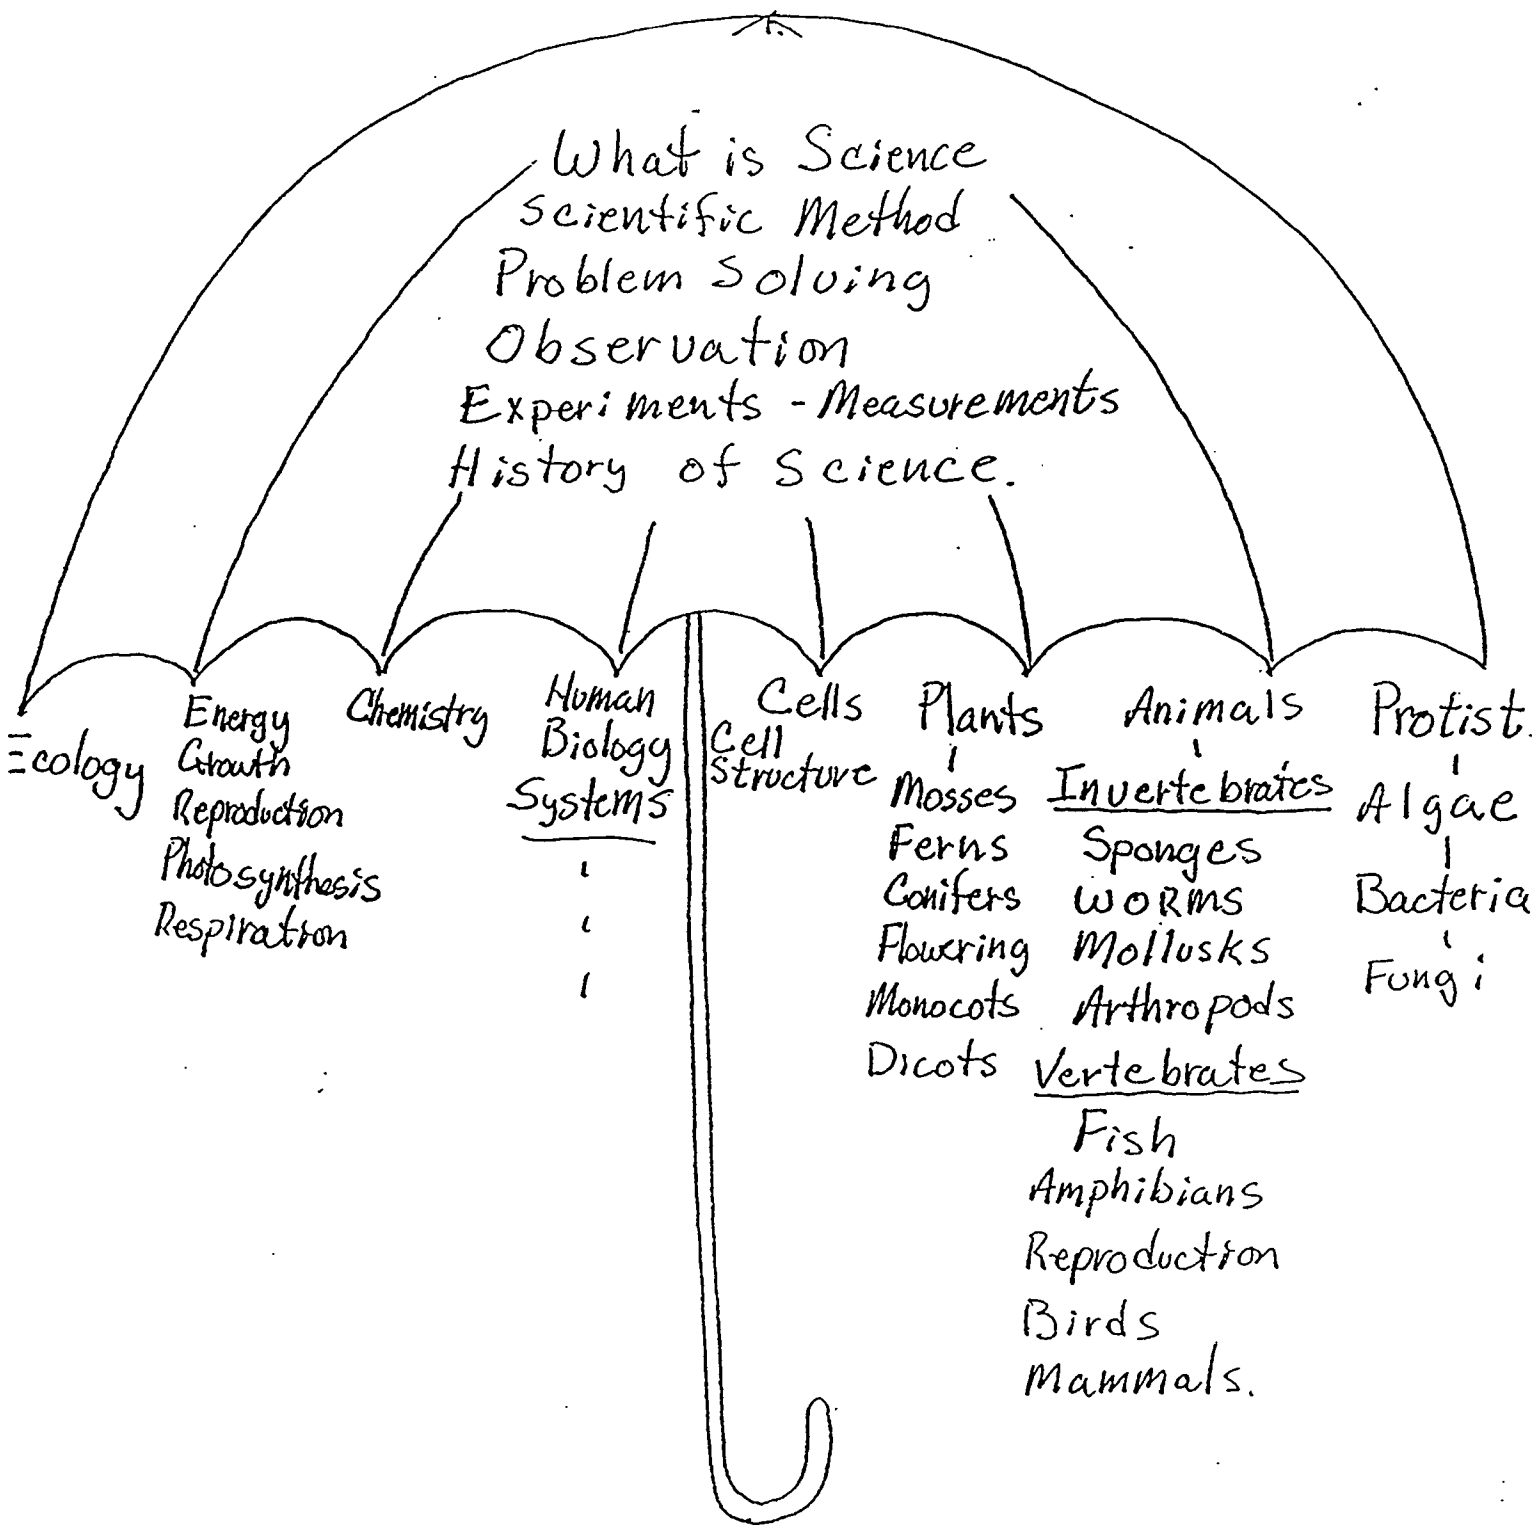 What is Science
Scientific Method
Problem Solving
Observation
Experiments - Measurements
History of Science.
Ecology
Energy
Growth
Reproduction
Photosynthesis
Respiration
Chemistry
Human
Biology
Systems
Cells
Cell
Structure
Plants
Mosses
Ferns
Conifers
Flowering
Monocots
Dicots
Animals
Invertebrates
Sponges
WORMS
Mollusks
Arthropods
Vertebrates
Fish
Amphibians
Reproduction
Birds
Mammals.
Protist.
Algae
Bacteria
Fungi